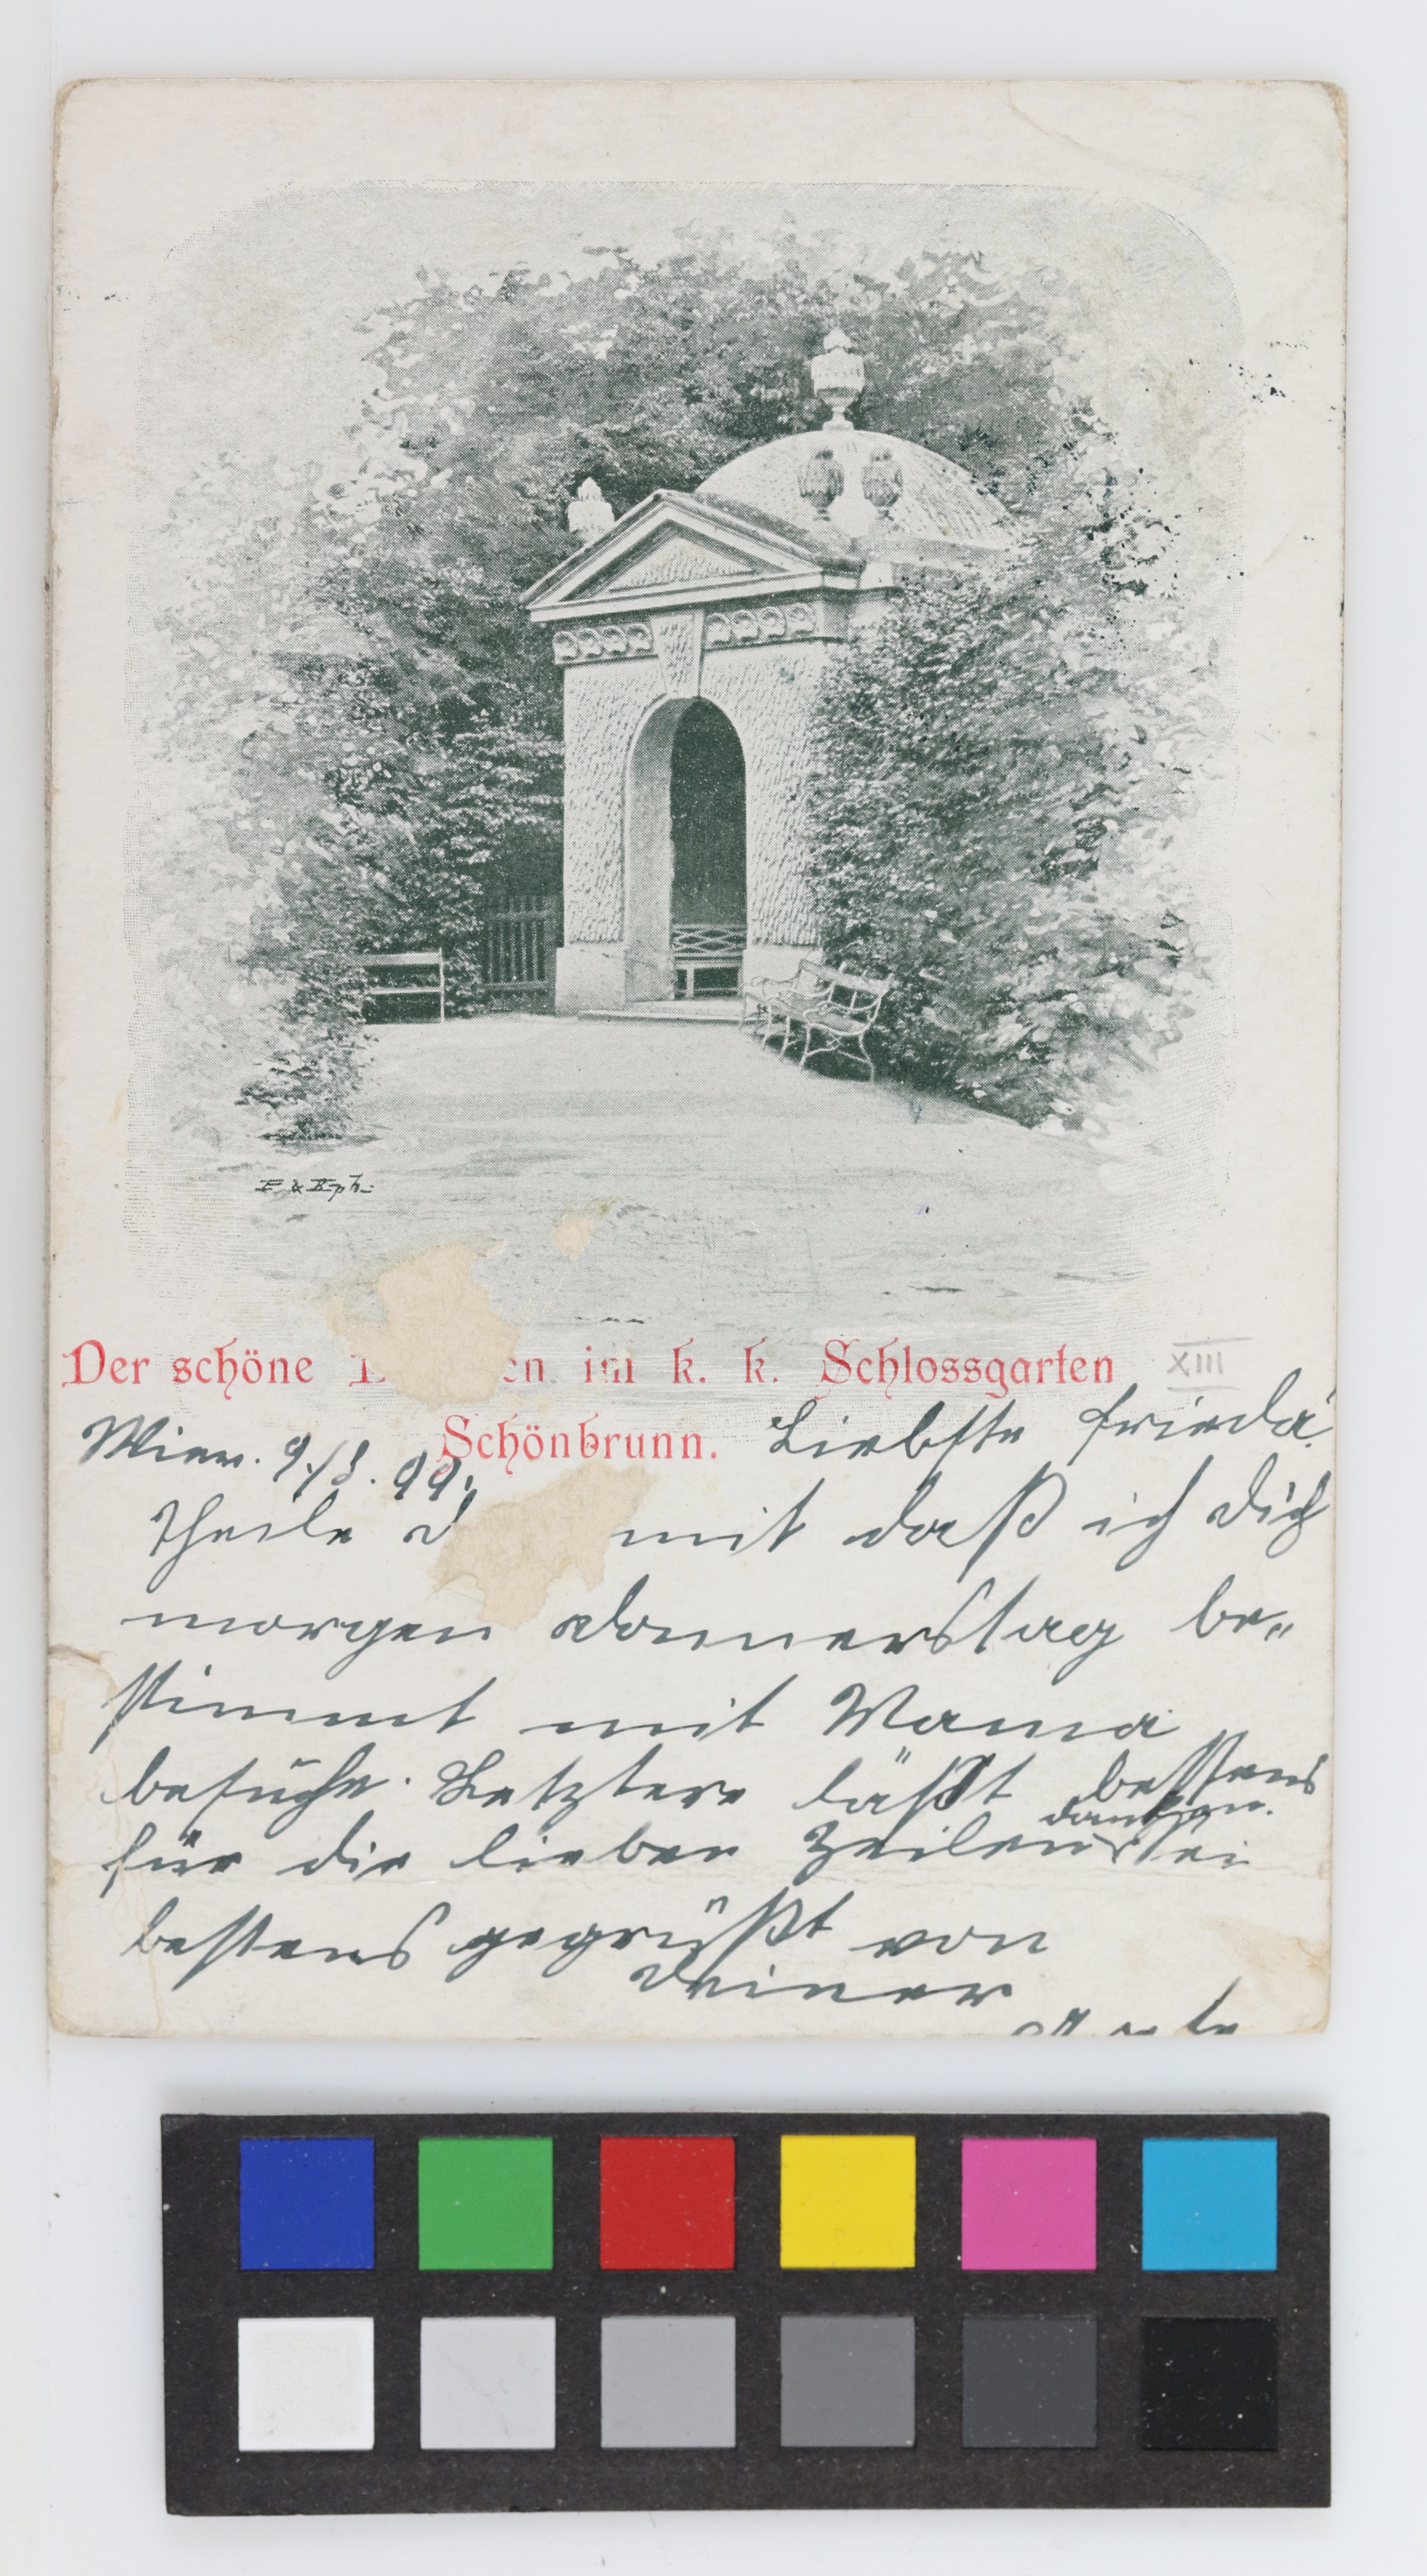 E. & K. ph.
Der schöne en im k. k. Schlossgarten
XIII
Schönbrunn.
Wien. 9./8. 99. Liebste Frieda!
Theile d mit daß ich dich
morgen Donnerstag be„
stimmt mit Mama
besuche. Letztere läßt bestens
danken.
für die lieben Zeilen sei
bestens gegrüßt von
Deiner